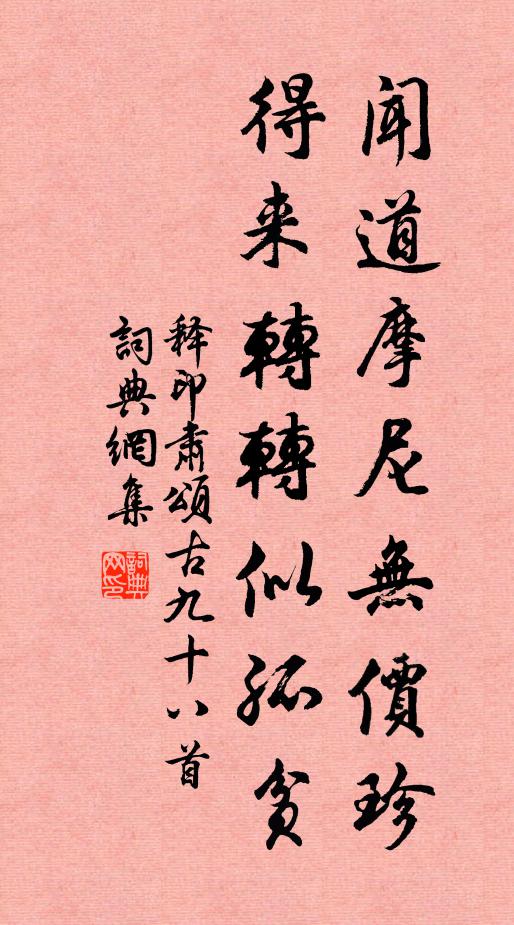 闻道摩尼無價珍
得来轉轉似孤貧
释印肃頌古九十八首
詞典網集
詞典网印